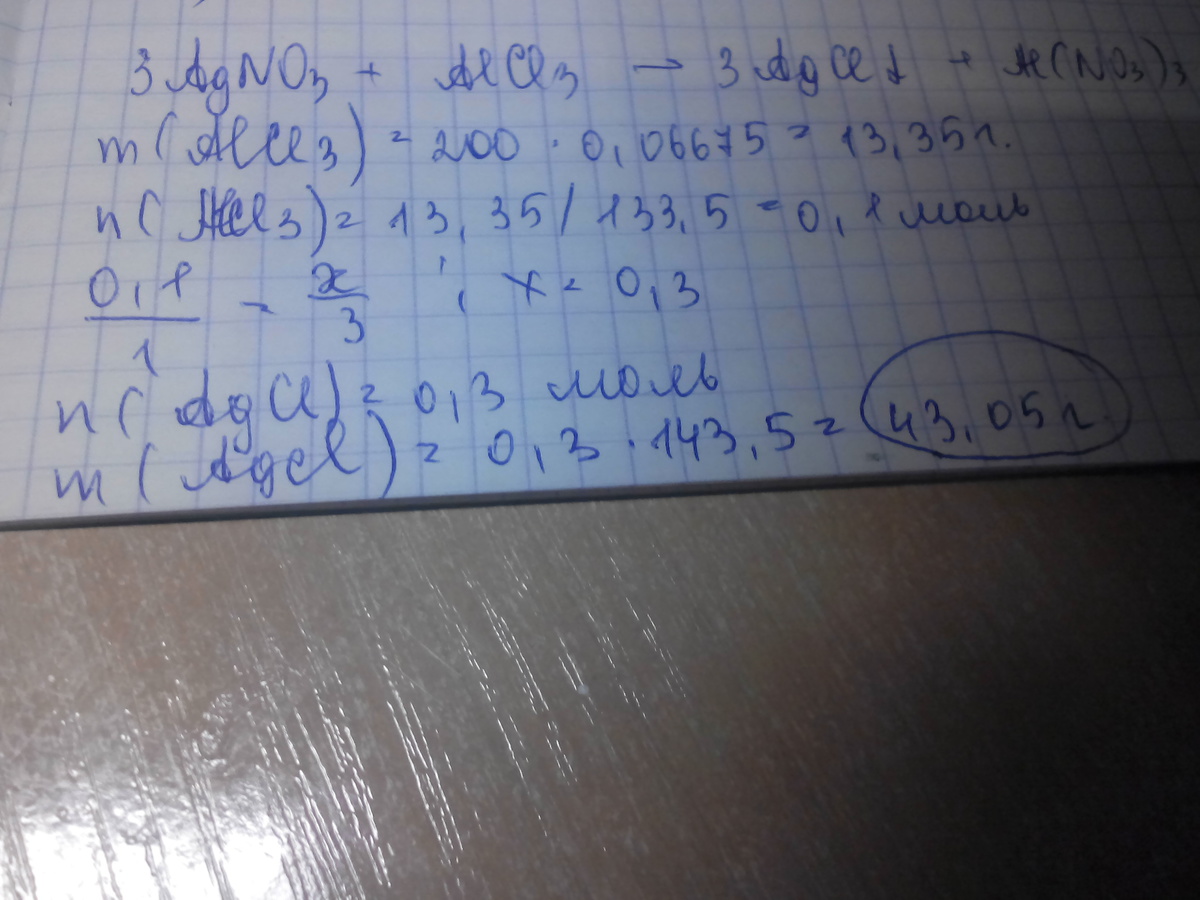 3AgNO3 + AlCl3 → 3AgCl↓ + Al(NO3)3
m(AlCl3) = 200 · 0,06675 = 13,35г.
n(AlCl3) = 13,35/133,5 = 0,1 моль
0,1/1 = x/3 ; x = 0,3
n(AgCl) = 0,3 моль
m(AgCl) = 0,3 · 143,5 = 43,05г.